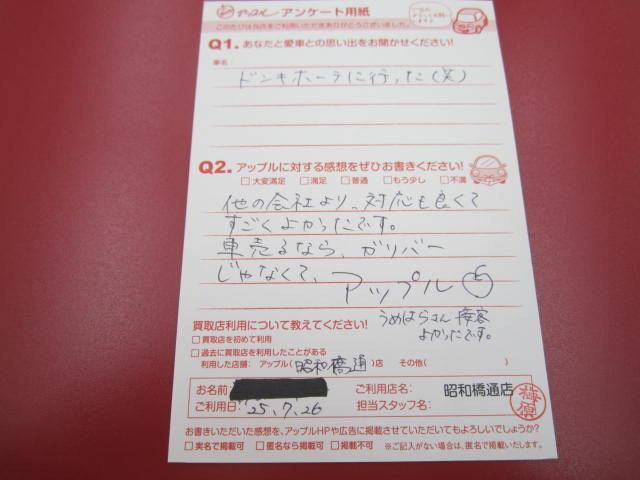 アップル アンケート用紙
このたびは当店をご利用いただきありがとうございました。
Q1. あなたと愛車との思い出をお聞かせください!
車名
ドンキホーテに行った(笑)
Q2. アップルに対する感想をぜひお書きください!
□大変満足 □満足 □普通 □もう少し □不満
他の会社より、対応も良くて
すごくよかったです。
車売るなら、ガリバー
じゃなくて、アップル
うめはらさん接客
よかったです。
買取店利用について教えてください!
□買取店を初めて利用
□過去に買取店を利用したことがある
利用した店舗: アップル(昭和橋通)店 その他( )
お名前
ご利用店名: 昭和橋通店
ご利用日: '25.7.26
担当スタッフ名:
梅原
お書きいただいた感想を、アップルHPや広告に掲載させていただいてもよろしいでしょうか?
□実名で掲載可 □匿名なら掲載可 □掲載不可 ※ご記入がない場合は、匿名で掲載いたします。